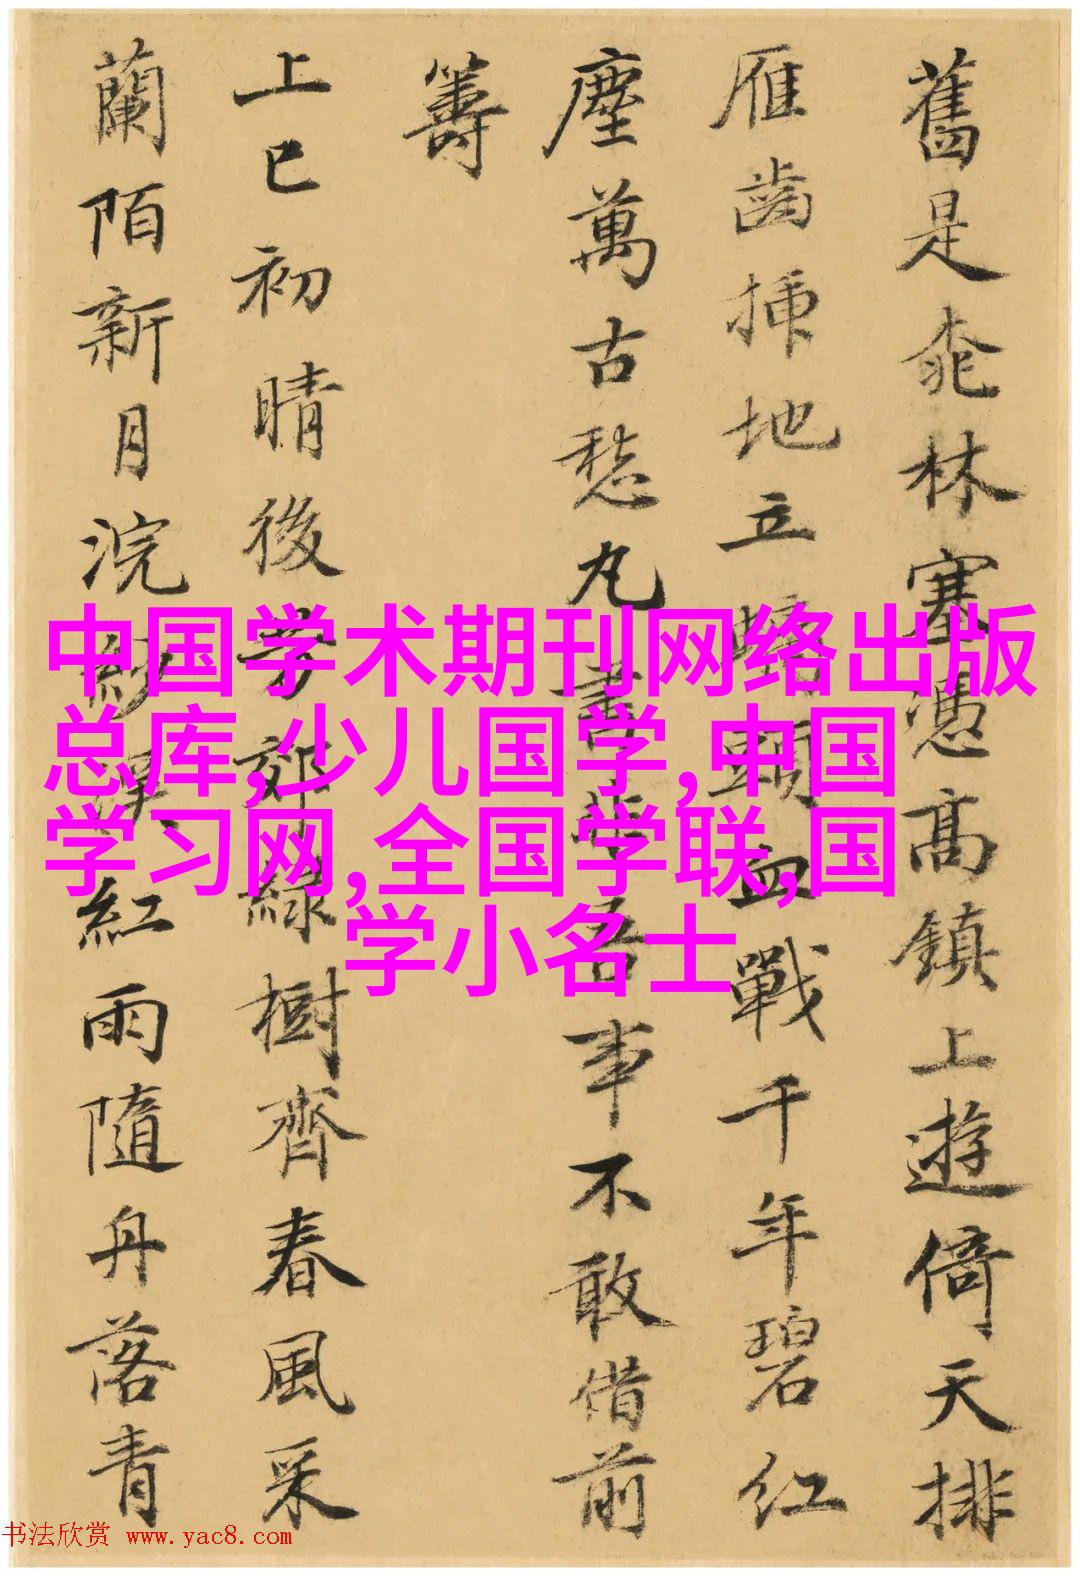 舊是桃林塞憑高鎮上遊倚天排
雁齒插地立螭頭血戰千年碧紅
塵萬古愁丸書非吾事不敢借前
籌
上巳初晴後芳郊綠樹齊春風采
蘭陌新月浣紗溪紅雨隨舟落青
中国学术期刊网络出版
总库,少儿国学,中国
学习网,全国学联,国
学小名士
书法欣赏 www.yac8.com